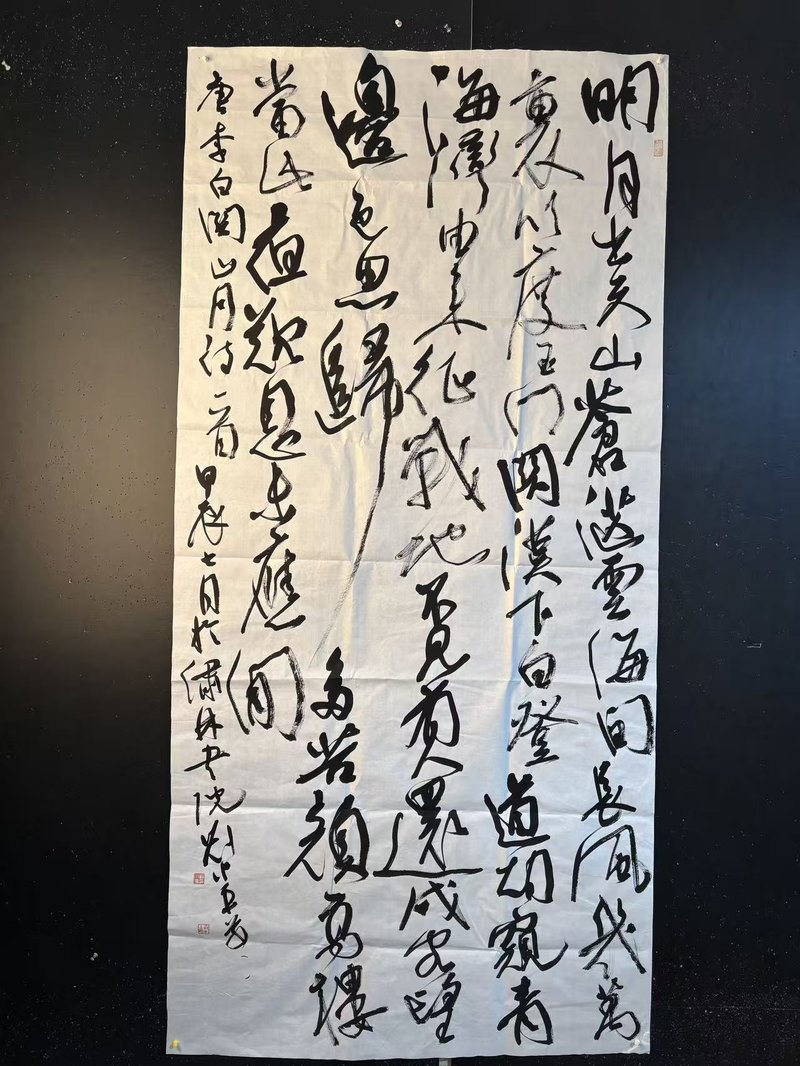 明月出天山蒼茫雲海間長風幾萬
裏吹度玉門關漢下白登道胡窺青
海灣由來征戰地不見有人還戍客望
邊色思歸多苦顏高樓
當此夜歎息未應閒
唐李白關山月詩一首甲辰七月於繡林書院劉